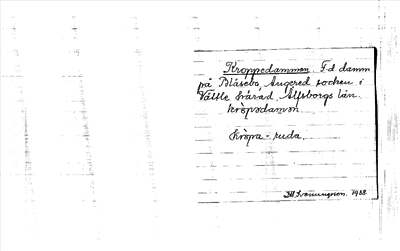 Kroppedammen. F.d damm
på Blåsebo, Angered socken i
Vättle härad. Älfsborgs län.
kröpsdammen.
kröpa - ruda.
1988